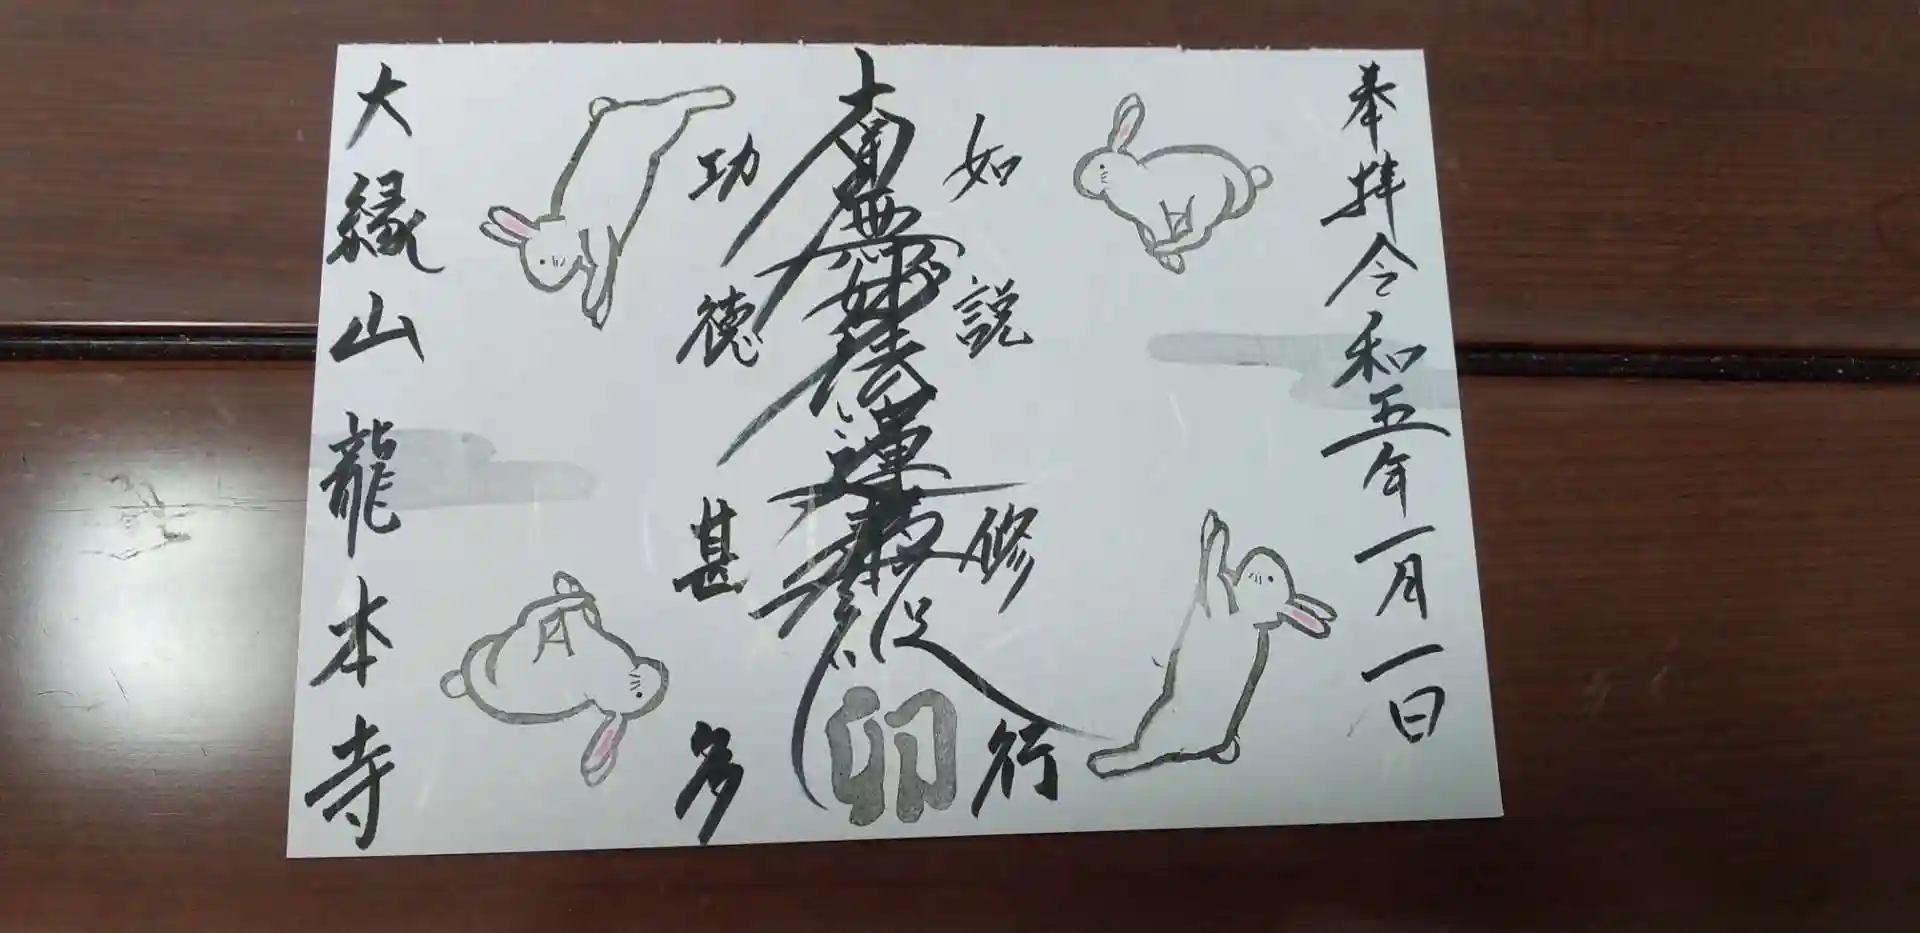 奉拝 令和五年一月一日
如説修行
南無妙法蓮華経
卯
功徳甚多
大縁山龍本寺